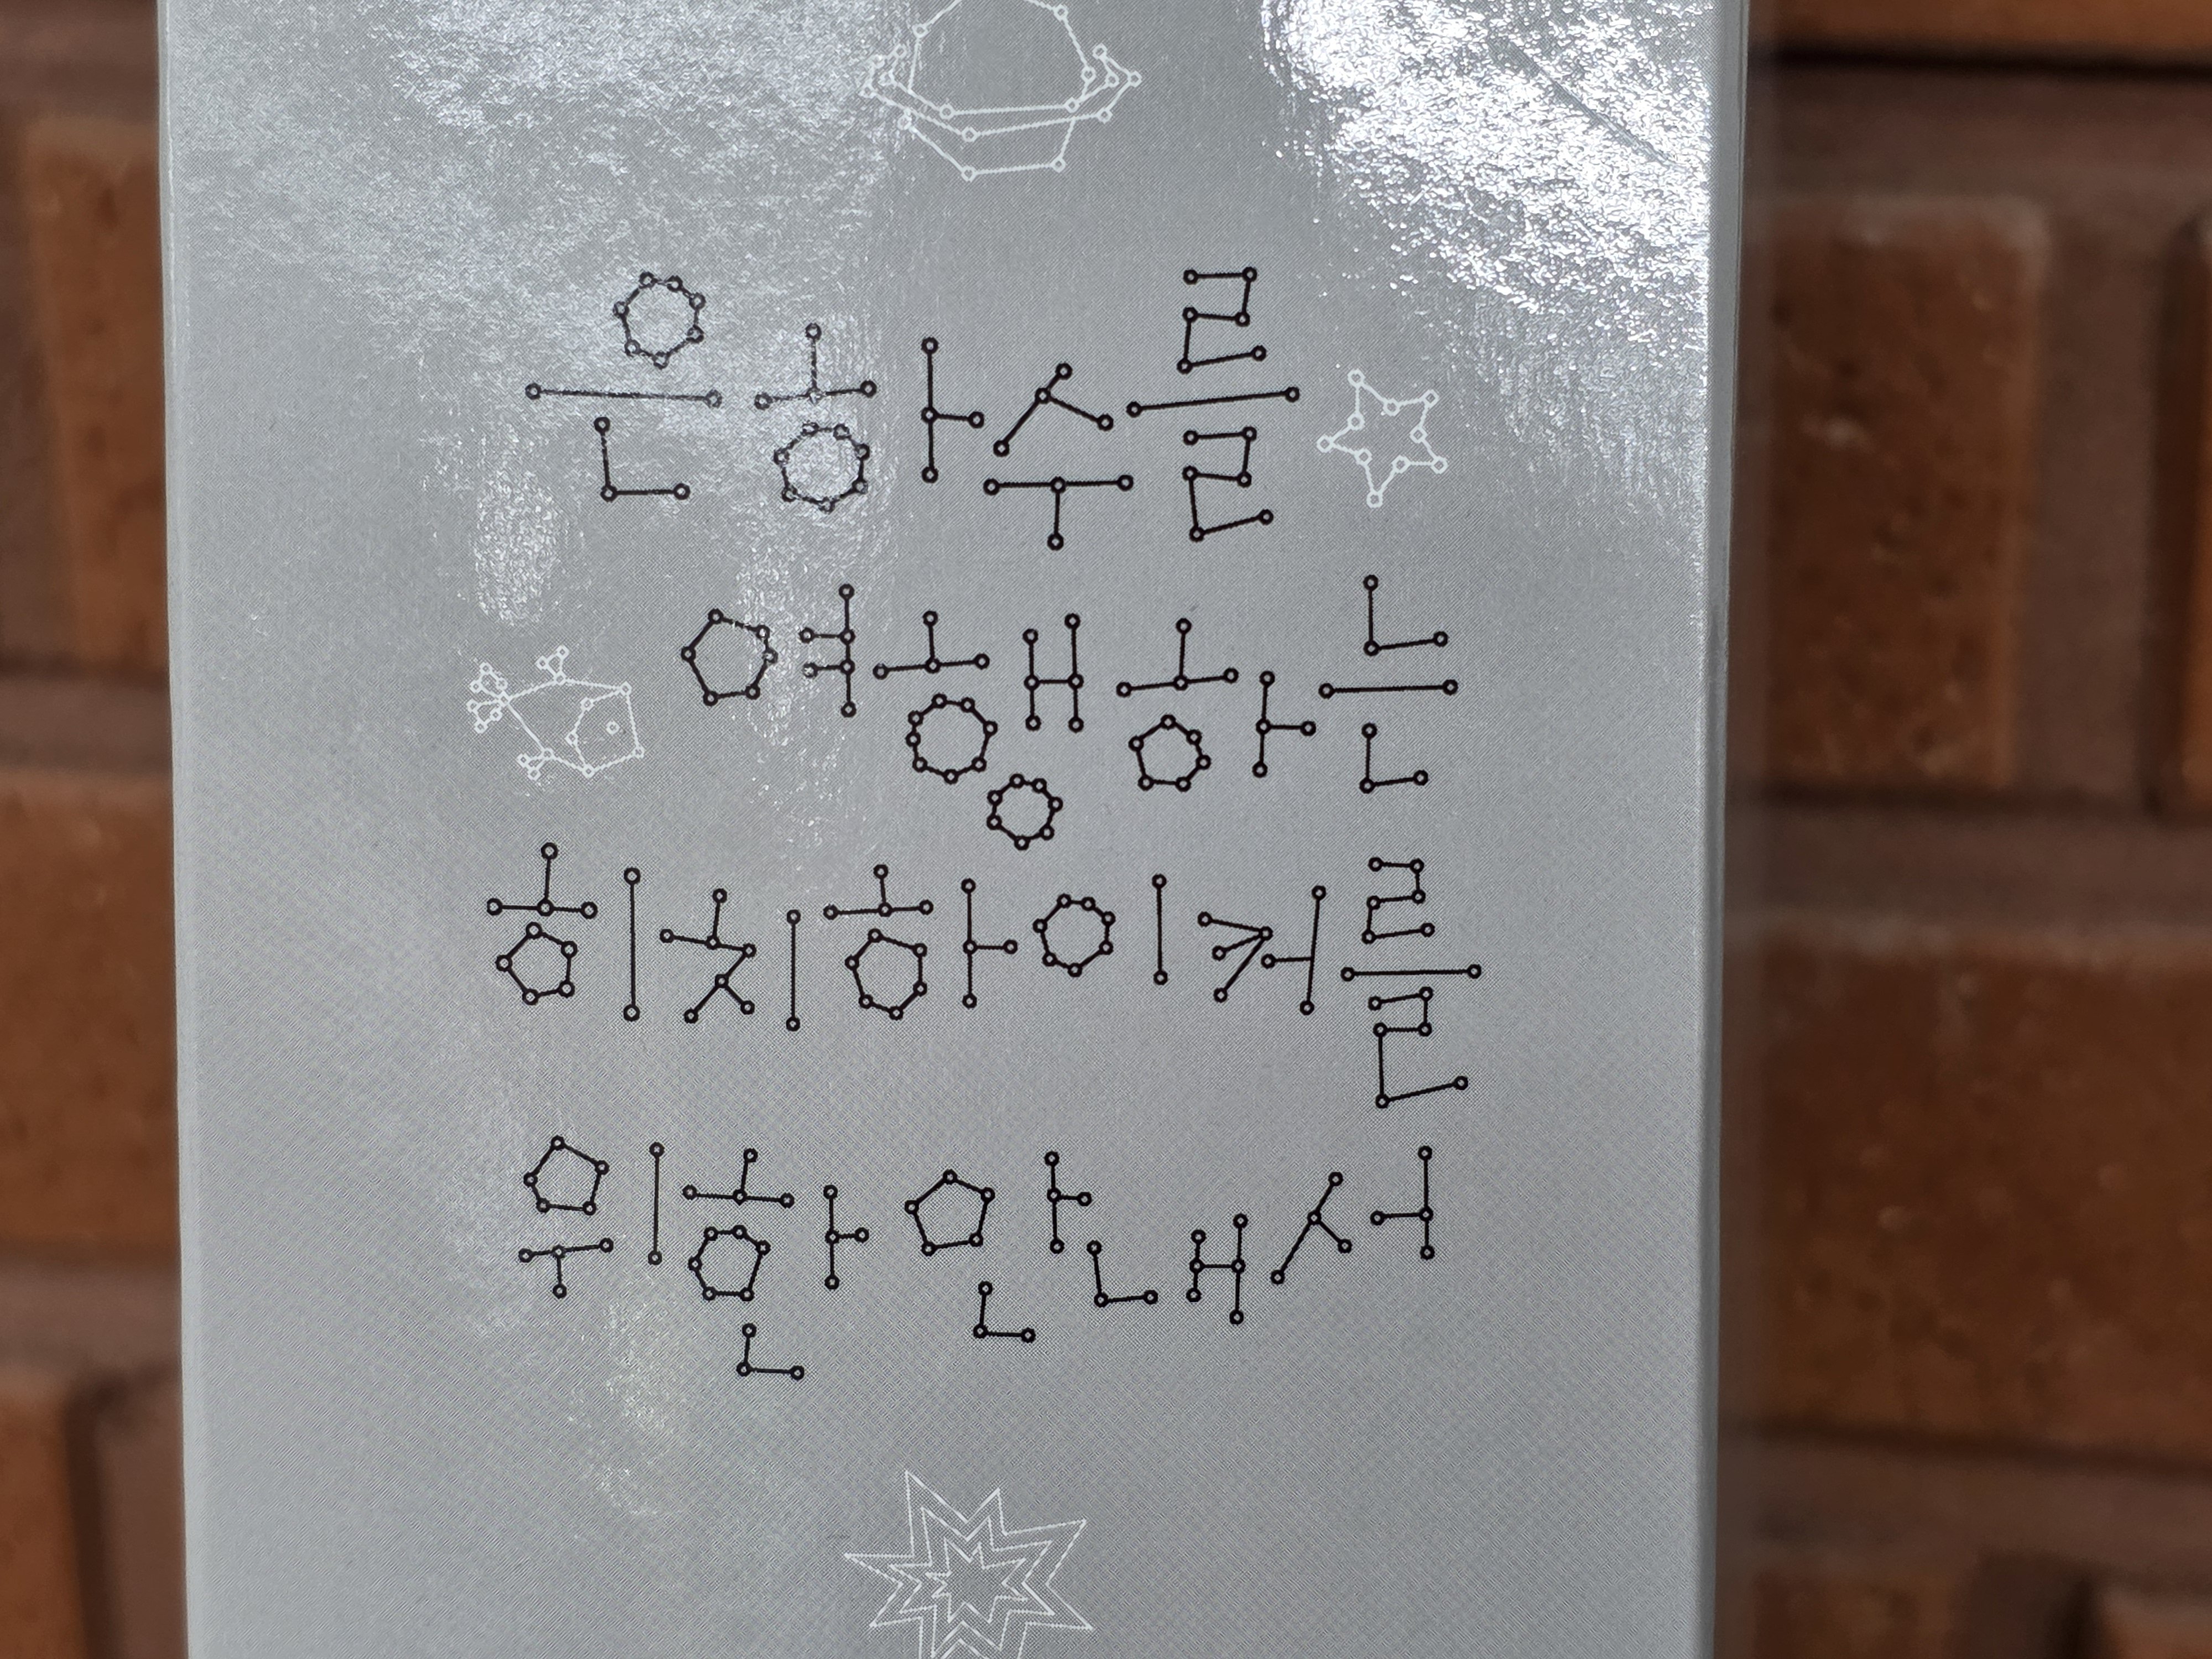 은하수를
여행하는
히치하이커를
위한 안내서